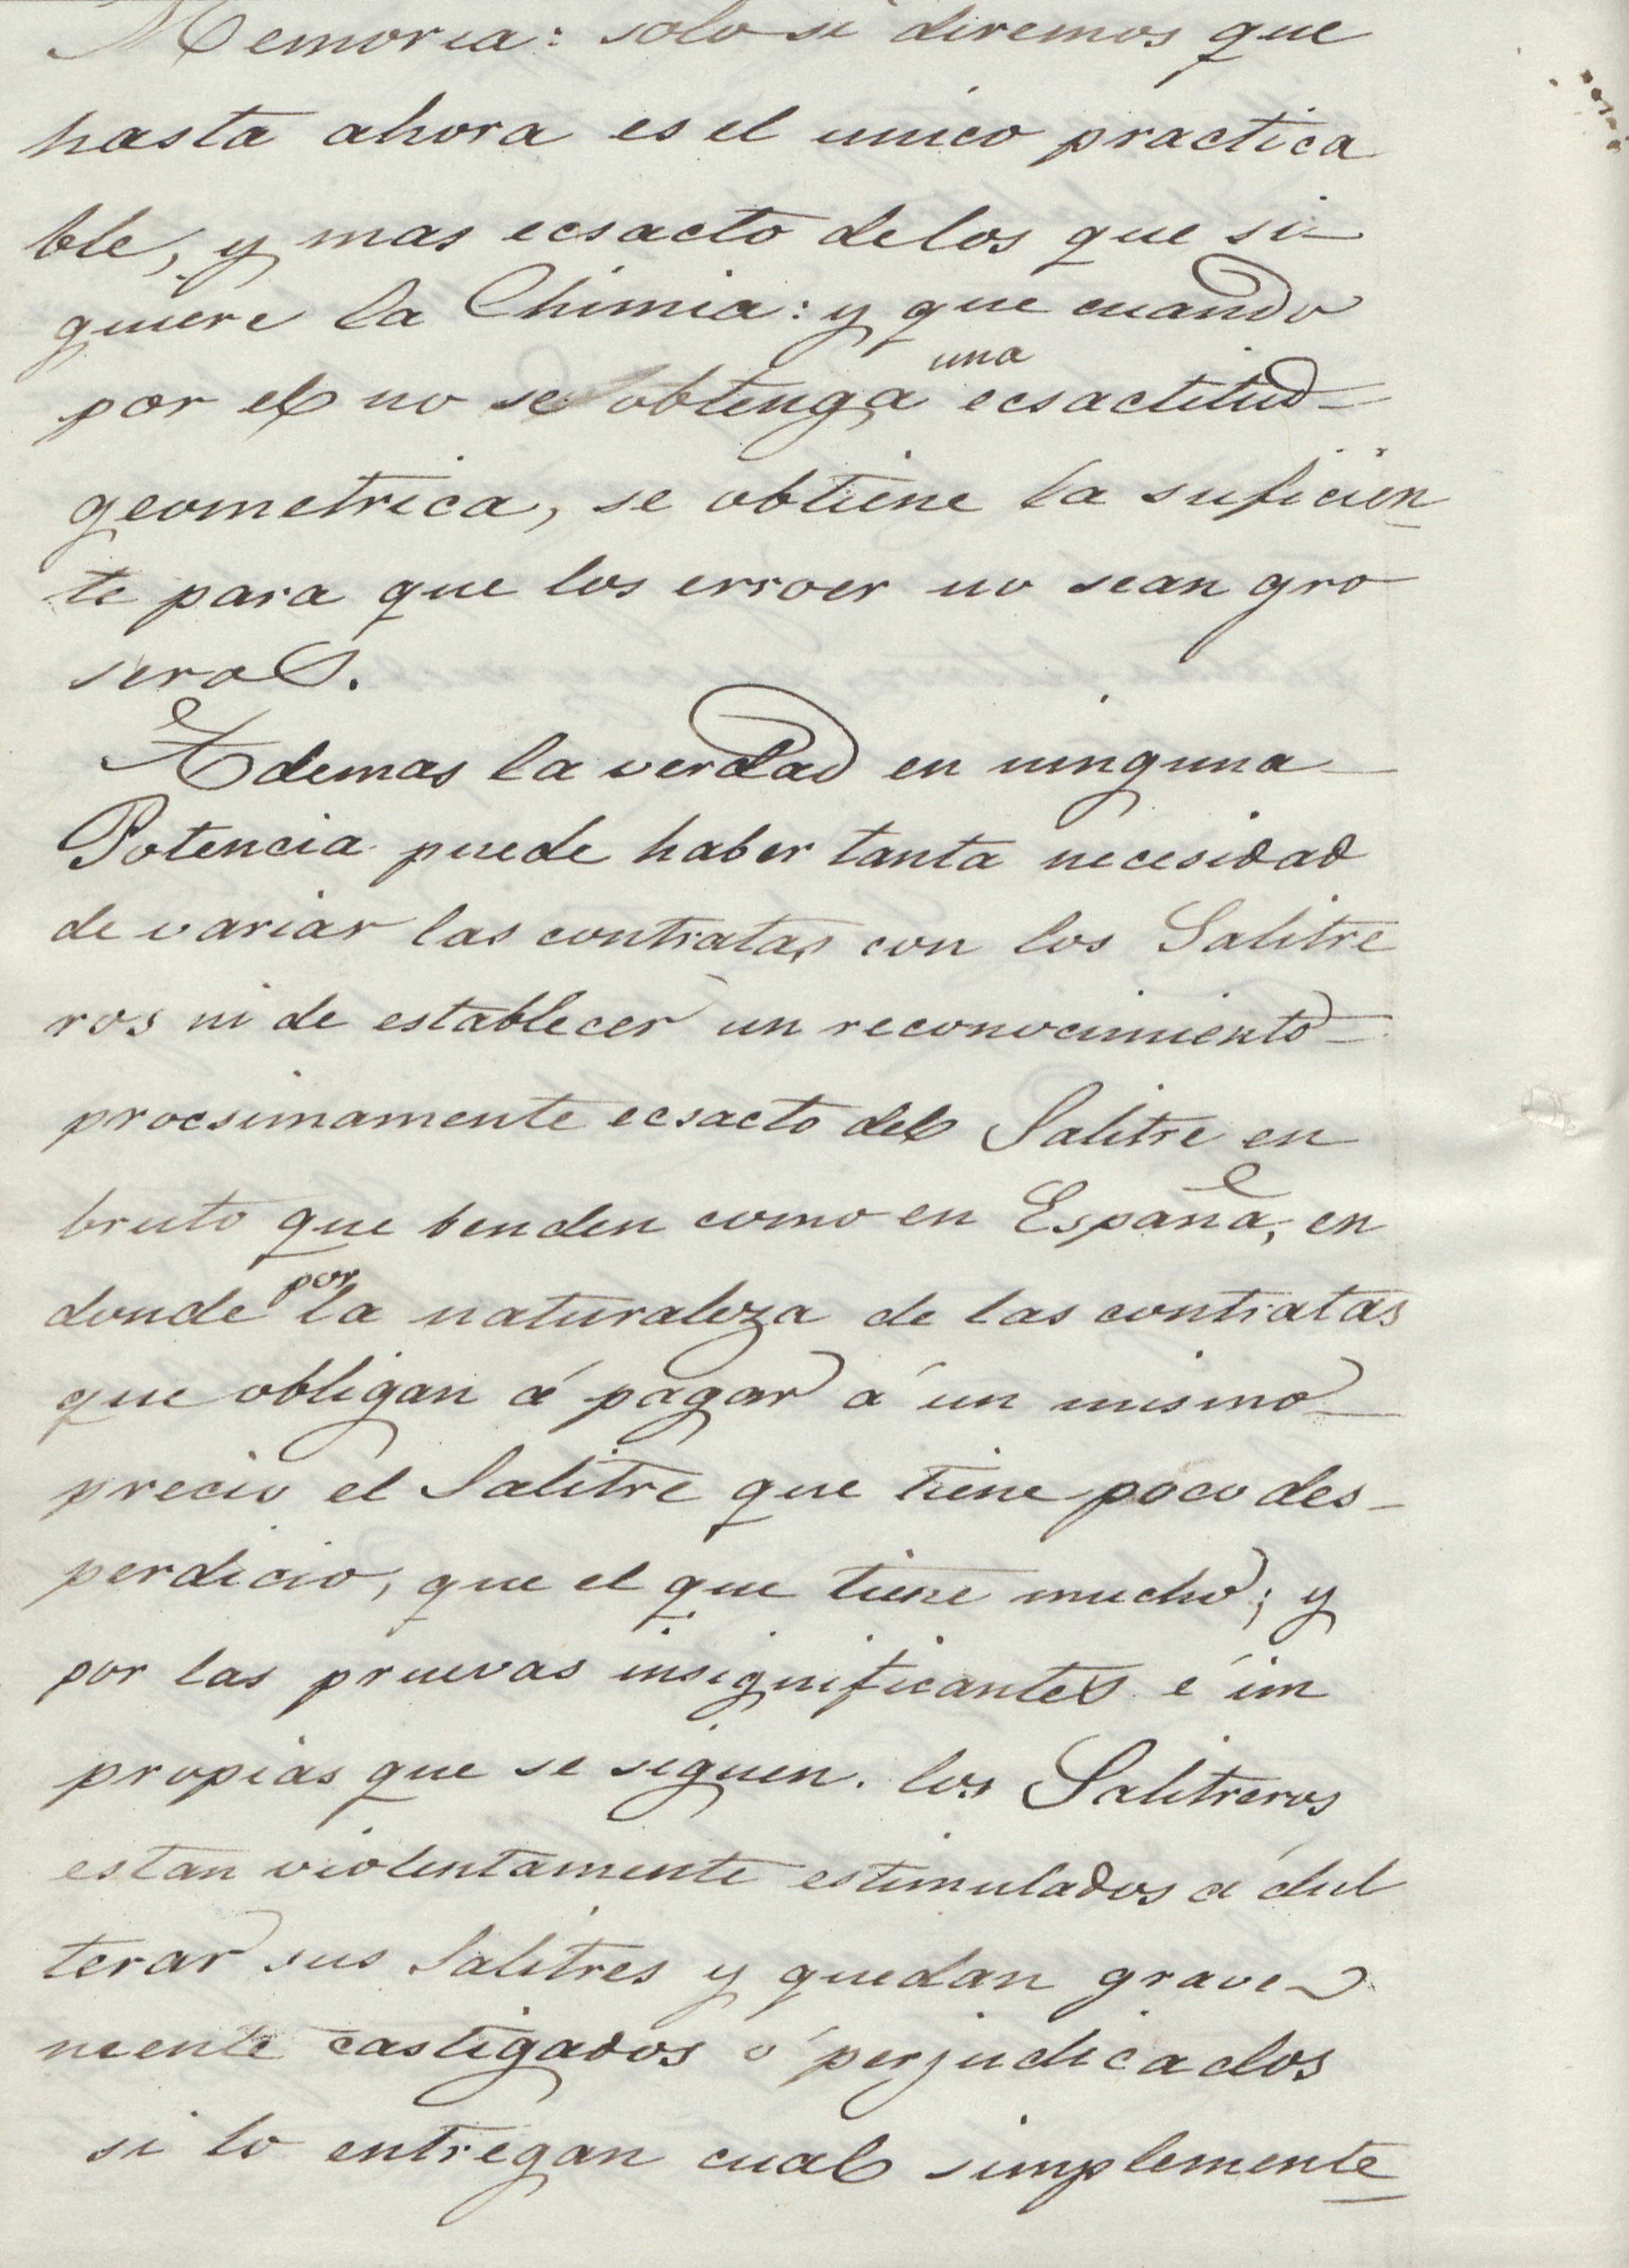 Memoria: solo si diremos que
hasta ahora es el unico practica
ble, y mas ecsacto de los que si-
guiere la Chimia: y que cuando
por el no se obtenga una ecsactitud-
geometrica, se obtiene la suficien
te para que los erroer no sean gro
seros.
Ademas la verdad en ninguna
Potencia puede haber tanta necesidad
de variar las contratas con los Salitre
ros ni de establecer un reconocimiento-
procsimamente ecsacto del Salitre en
bruto que benden como en España, en
donde por la naturaleza de las contratas
que obligan á pagar á un mismo
precio el Salitre que tiene poco des-
perdicio, que el que tiene mucho; y
por las pruevas insignificantes é im
propias que se siguen. los Salitreros
estan violentamente estimulados á dul
terar sus Salitres y quedan grave-
mente castigados ó perjudicados
si lo entregan cual simplemente